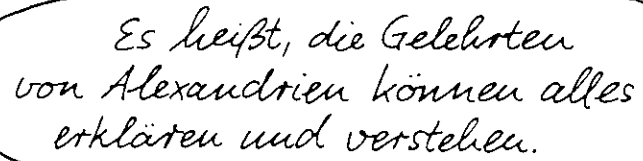 Es heißt, die Gelehrten
von Alexandrien können alles
erklären und verstehen.